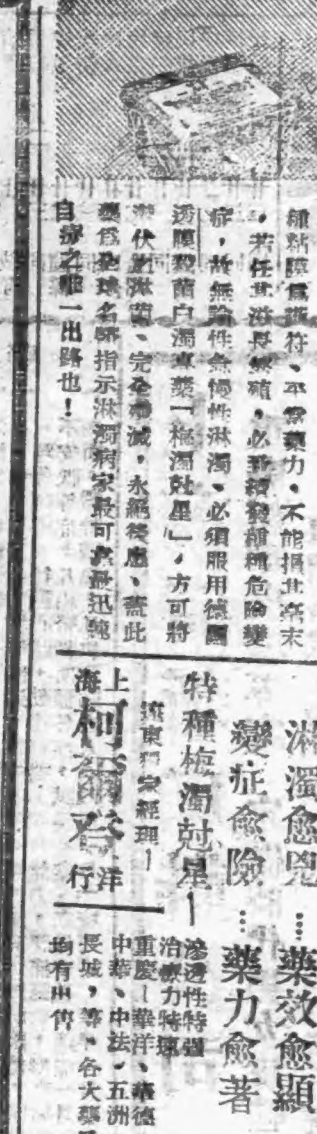 種粘膜爲護符、平常藥力、不能損其毫末
，若任其滋長繁殖，必至續發種種危險變
症，故無論性急慢性淋濁、必須服用德國
透膜殺菌白濁專藥「梅濁尅星」，方可將
潛伏的淋菌、完全撲滅，永絕後患、蓋此
藥爲全球名醫指示淋濁病家最可靠最迅速
自療之唯一出路也！
淋濁愈兇⋯藥效愈顯
變症愈險⋯藥力愈著
特種梅濁尅星
滲透性特強
治療力特速
遠東獨家經理
上海柯爾登洋行
重慶 華洋、華德
中華、中法、五洲
長城，等、各大藥
均有出售